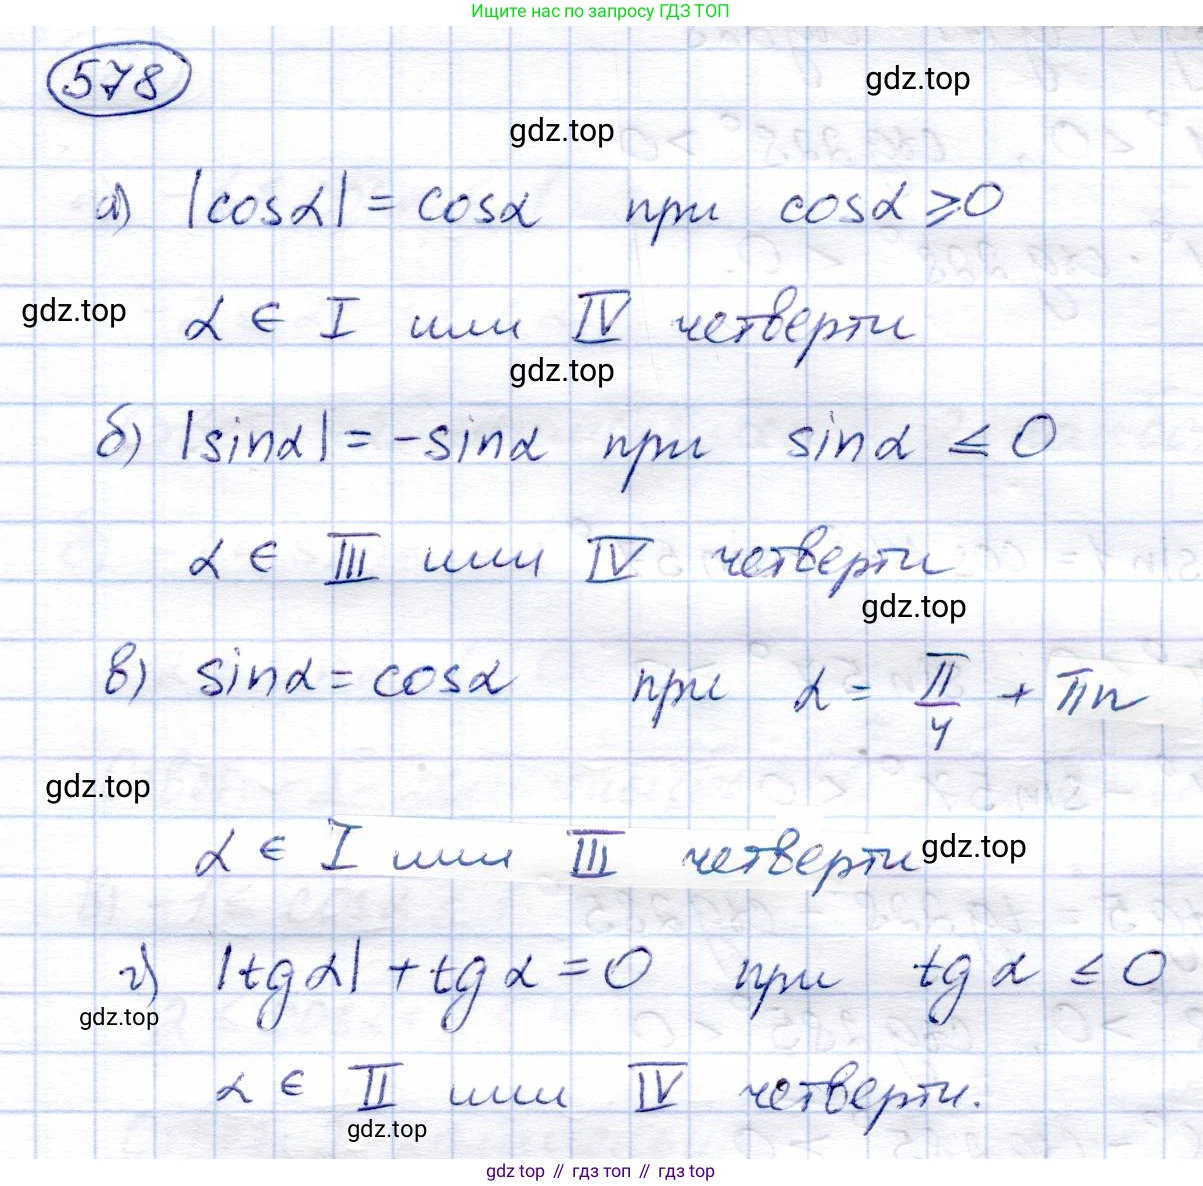 Ищите нас по запросу ГДЗ ТОП
578
gdz.top
gdz.top
а) |cosα| = cosα при cosα ⩾ 0
gdz.top
α ∈ I или IV четверти
gdz.top
б) |sinα| = -sinα при sinα ≤ 0
α ∈ III или IV четверти
gdz.top
в) sinα = cosα при α = π/4 + πn
gdz.top
α ∈ I или III четверти
gdz.top
г) |tgα| + tgα = 0 при tgα ≤ 0
gdz.top
α ∈ II или IV четверти.
gdz.top
gdz top // гдз топ // gdz top